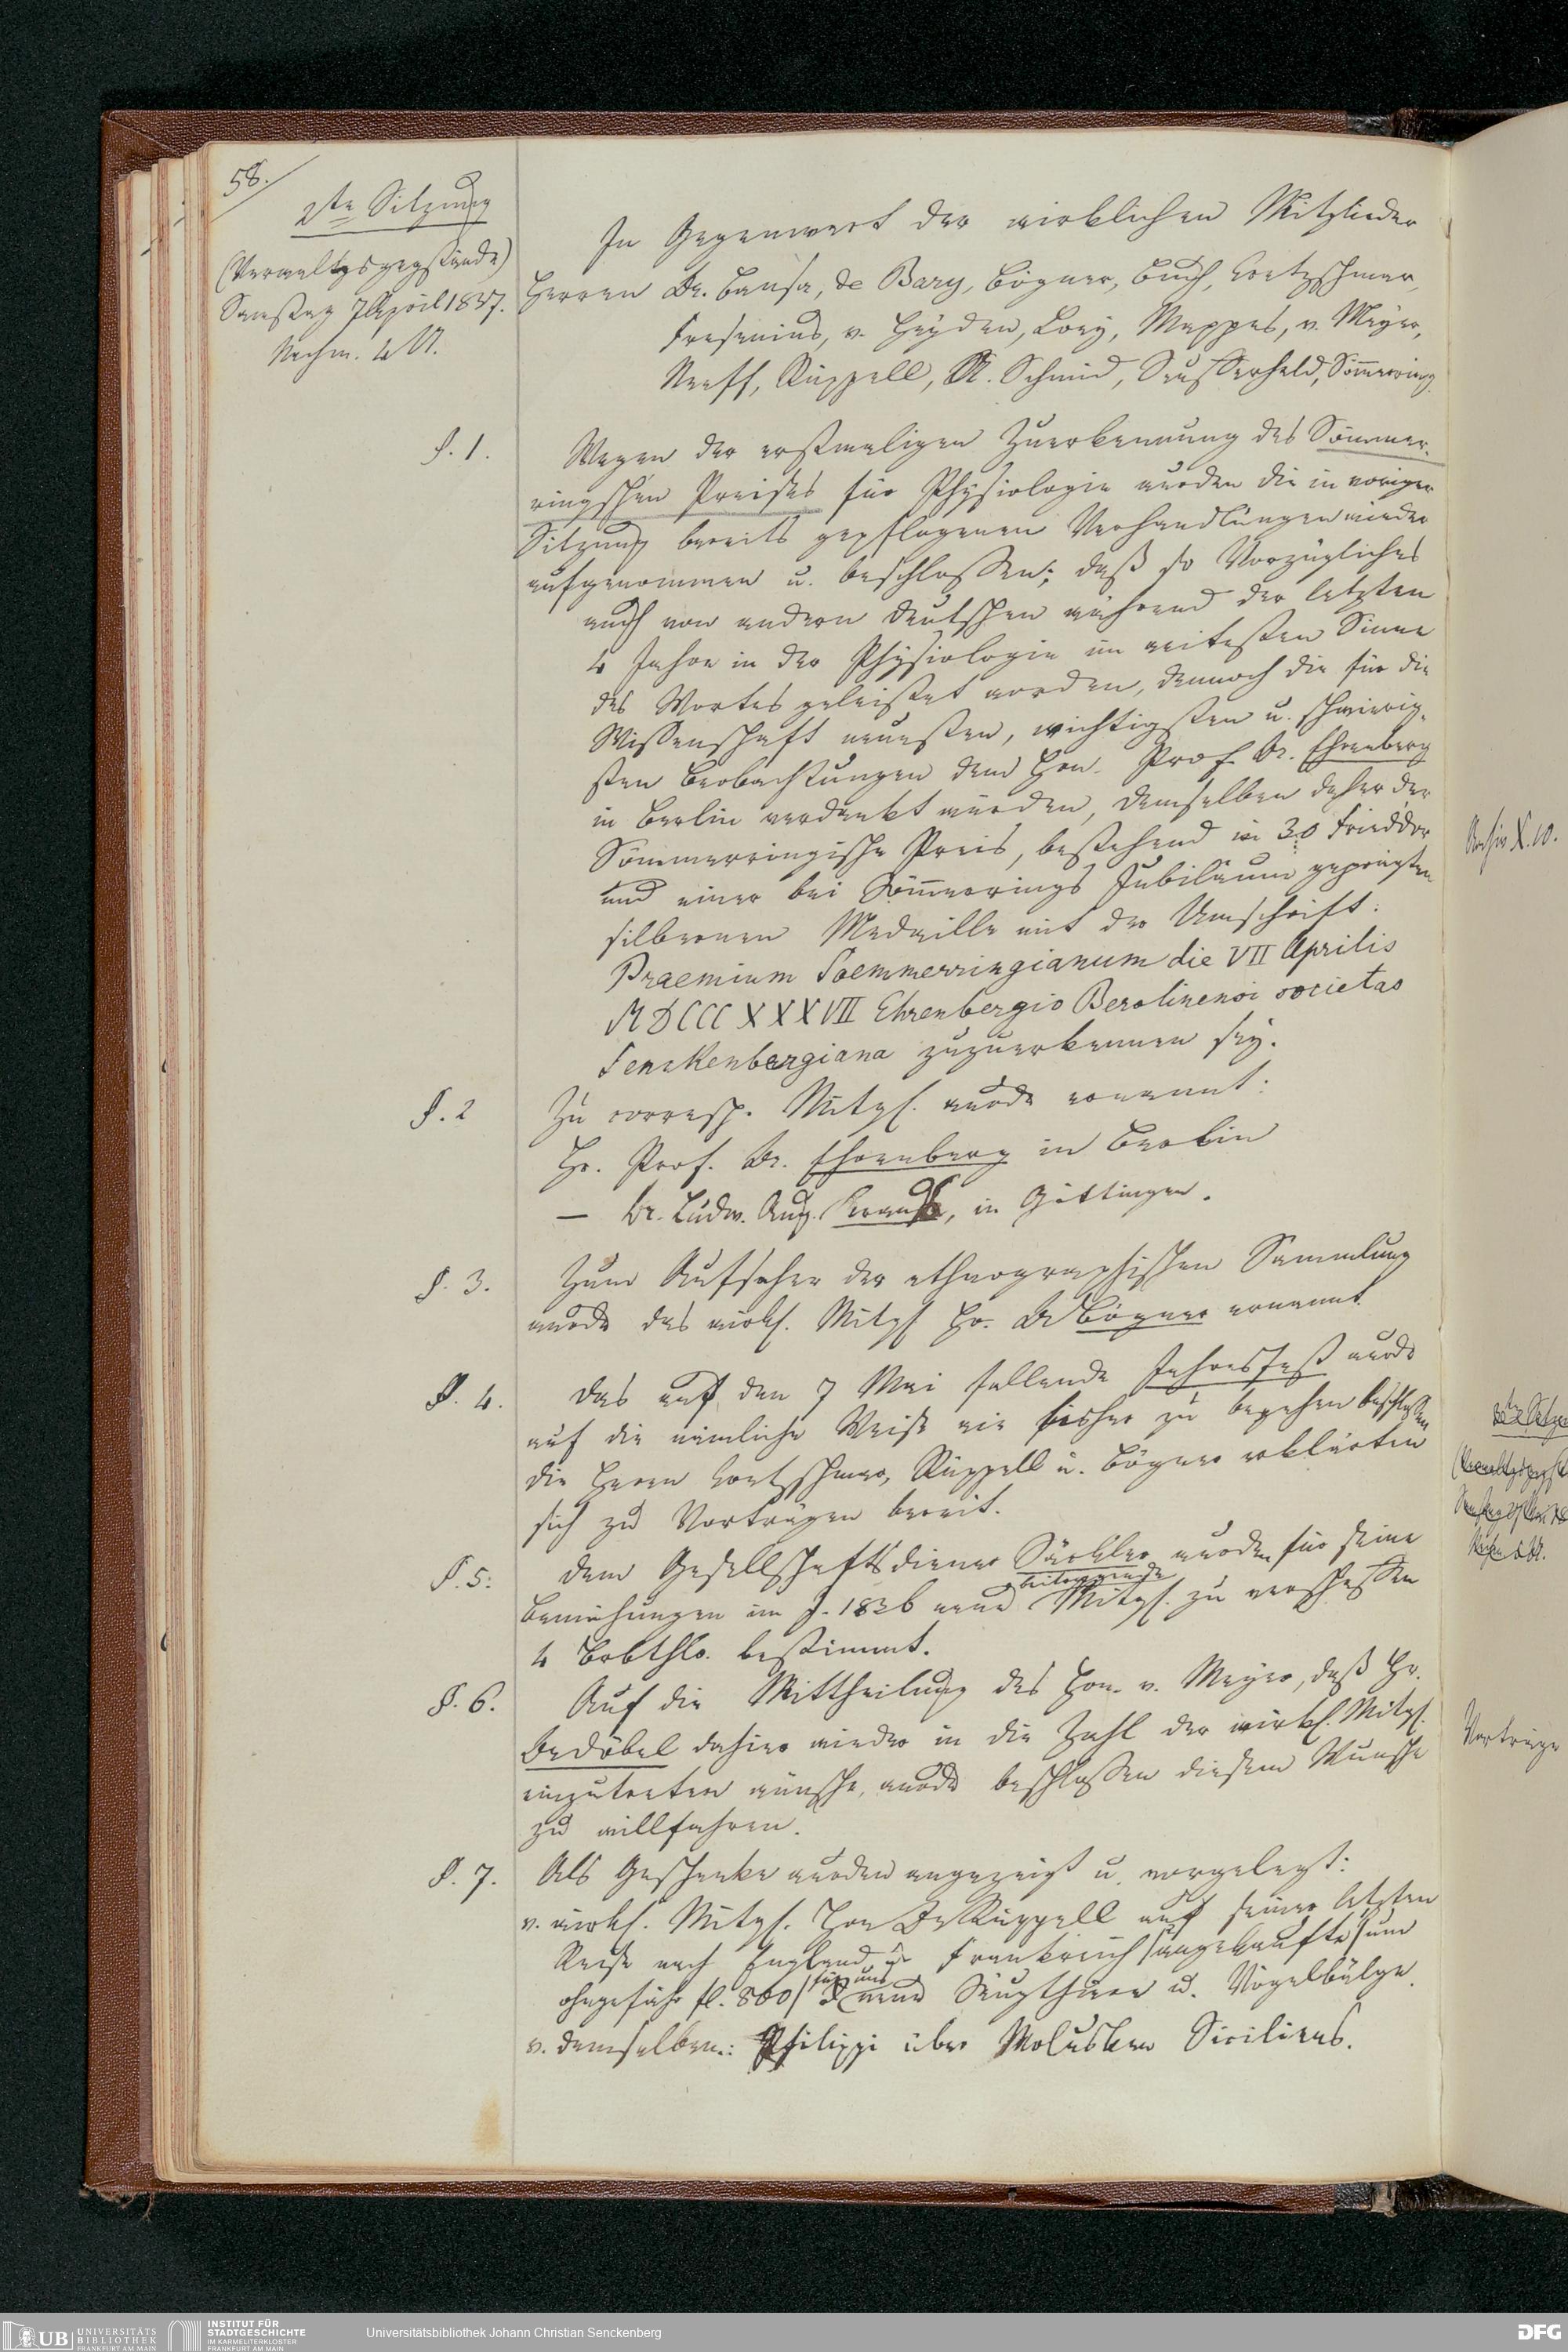 58.
2te Sitzung
(Verwaltgsgegstände)
Samstag 7 April 1837.
Nachm. 4 U.
In Gegenwart der wirklichen Mitglieder
Herren Dr. Bansa, de Bary, Bögner, Buch, Cretzschmar,
Fresenius, v. Heyden, Lorey, Mappes, v. Meyer,
Neeff, Rüppell, A. Schmid, Seufferheld, Sömmering.
§. 1.
Wegen der erstmaligen Zuerkennung des Sömmer-
ringschen Preises für Physiologie wurden die in voriger
Sitzung bereits gepflogenen Verhandlungen wieder
aufgenommen u. beschlossen; daß so Vorzügliches
auch von andern Deutschen während der letzten
4 Jahre in der Physiologie im weitesten Sinne
des Wortes geleistet worden, dennoch die für die
Wissenschaft neuesten, wichtigsten u. schwierig-
sten Beobachtungen dem Hrn. Prof. Dr. Ehrenberg
in Berlin verdankt würden, demselben daher der
Sömmerringische Preis, bestehend in 30 Frieddor
und einer bei Sömmerings Jubiläum geprägten
silbernen Medaille mit der Umschrift:
Praemium Soemmerringianum die VII Aprilis
MDCCCXXXVII Ehrenbergio Berolinensi societas
Senckenbergiana zuzuerkennen sey.
§. 2
Zu corresp. Mitgl. wurde ernannt:
Hr. Prof. Dr. Ehrenberg in Berlin
— Dr. Ludw. Aug. Krauß, in Göttingen.
§. 3.
Zum Aufseher der ethnographischen Sammlung
wurde das wirkl. Mitgl. Hr. Dr Bögner ernannt.
§. 4.
Das auf den 7 Mai fallende Jahresfest wurde
auf die nämliche Weise wie bisher zu begehen beschlossen
die Herrn Cretzschmar, Rüppell u. Bögner erklärten
sich zu Vorträgen bereit.
§. 5:
Dem Gesellschaftsdiener wurden für seine
beitragende
Bemühungen im J. 1836 neue Mitgl. zu verschaffen
4 Brbthlr. bestimmt.
§. 6.
Auf die Mittheilung des Hrn. v. Meyer, daß Hr.
dahier wieder in die Zahl der wirkl. Mitgl.
einzutreten wünsche, wurde beschlossen diesem Wunsche
zu willfahren.
§. 7.
Als Geschenke wurden angezeigt u. vorgelegt:
v. wirkl. Mitgl. Hrn Dr Rüppell auf seiner letzten
Reise nach England u. Frankreich /angekaufte/ um
für uns
ohngefähr fl. 800/ neue Säugthiere u. Vögelbälge.
v. demselben: Philippi über Molusken Siciliens.
Archiv X. 10.
Vorträge
UB UNIVERSITÄTS
BIBLIOTHEK
FRANKFURT AM MAIN
INSTITUT FÜR
STADTGESCHICHTE
IM KARMELITERKLOSTER
FRANKFURT AM MAIN
Universitätsbibliothek Johann Christian Senckenberg
DFG